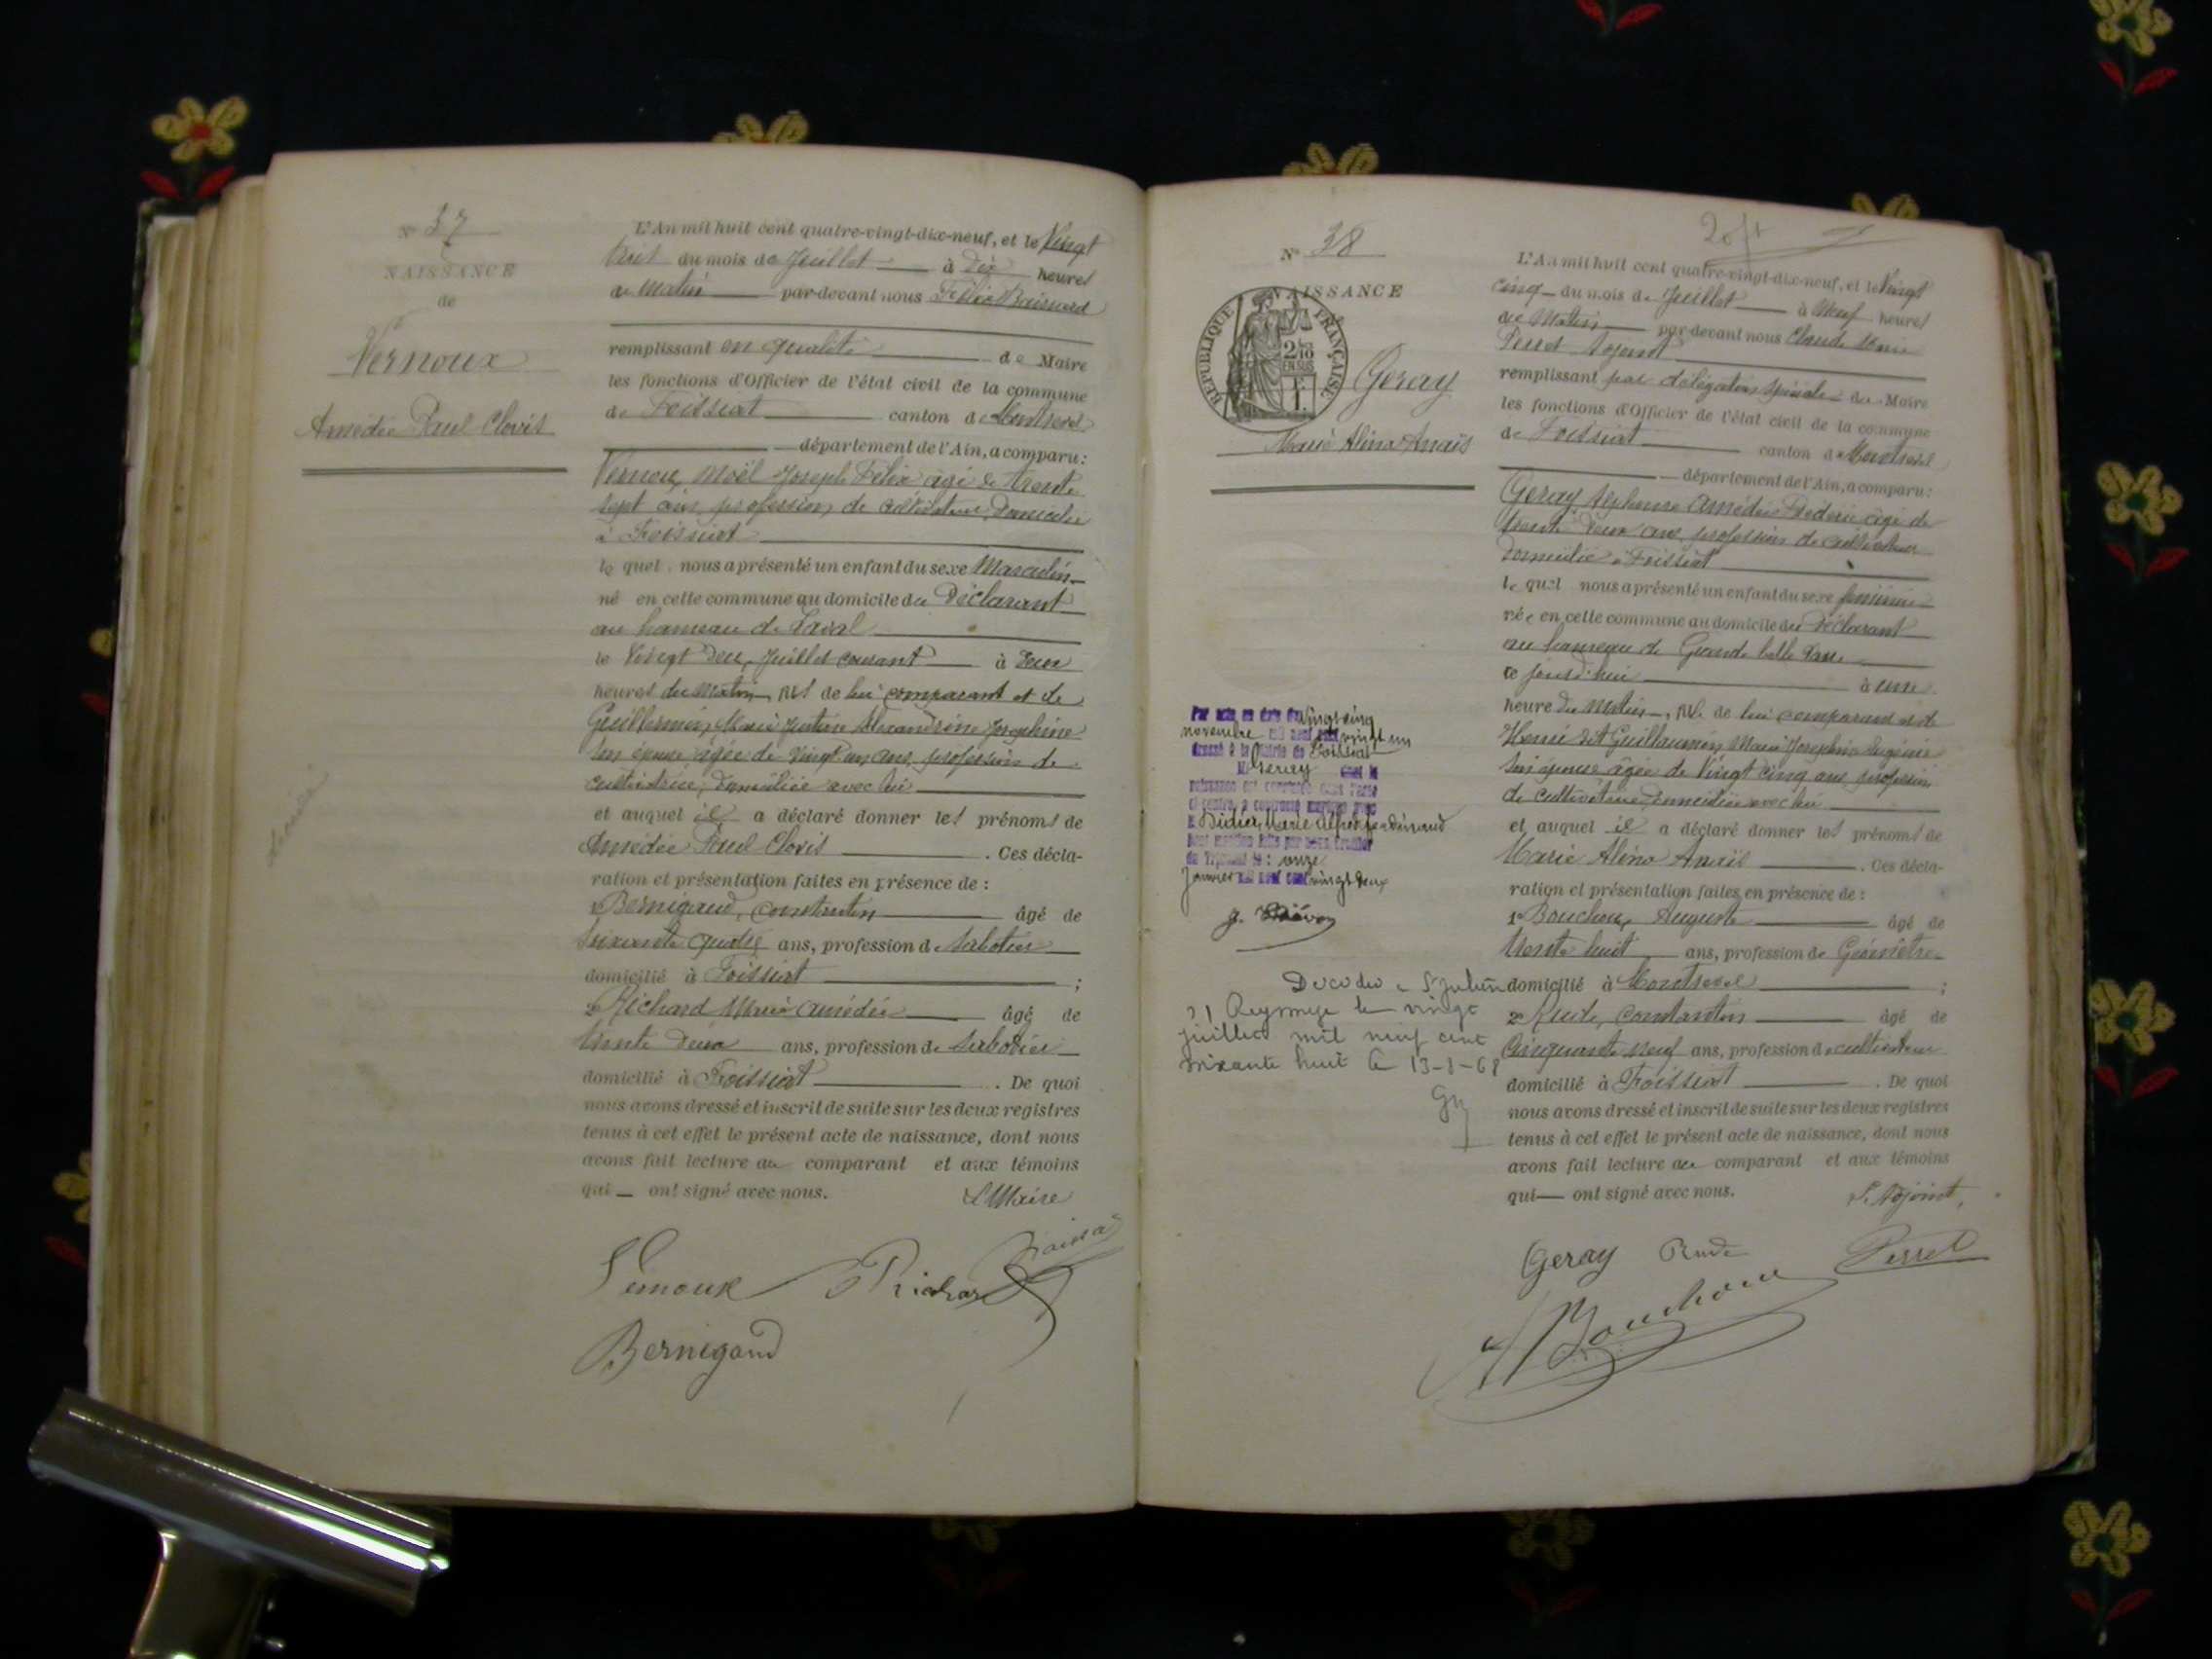 N° 37
NAISSANCE
de
Vernoux
Amédée Paul Clovis
L'An mil huit cent quatre-vingt-dix-neuf, et le Vingt
trois du mois de Juillet à Dix heures
du Matin par-devant nous Félix
remplissant en qualité de Maire
les fonctions d'Officier de l'état civil de la commune
de Foissiat canton de Montrevel
département de l'Ain, a comparu:
Vernoux Noël Joseph Félix âgé de trente
sept ans, profession de cultivateur, Domicilié
à Foissiat
le quel nous a présenté un enfant du sexe Masculin
né en cette commune au domicile du Déclarant
au hameau de Laval
le Vingt deux Juillet courant à Deux
heures du Matin, fils de lui comparant et de
Guillermin, Marie Justine Alexandrine Josephine
son épouse âgée de Vingt un ans, profession de
cultivatrice, domiciliée avec lui
et auquel il a déclaré donner les prénoms de
Amédée Paul Clovis . Ces décla-
ration et présentation faites en présence de :
1° Bernigaud, Constantin âgé de
soixante quatre ans, profession de Sabotier
domicilié à Foissiat ;
2° Richard Marie Amédée âgé de
trente deux ans, profession de Sabotier
domicilié à Foissiat . De quoi
nous avons dressé et inscrit de suite sur les deux registres
tenus à cet effet le présent acte de naissance, dont nous
avons fait lecture au comparant et aux témoins
qui ont signé avec nous. Le Maire
Vernoux Richard
Bernigaud
N° 38
NAISSANCE
REPUBLIQUE FRANÇAISE
2/10
EN SUS
Geray
Marie Alina Anaïs
Par acte en date du vingt cinq
novembre mil neuf cent vingt un
dressé à la Mairie de Foissiat
M Geray dont la
naissance est constatée dans l'acte
ci-contre, a contracté mariage avec
M Didier, Marie Alfred Ferdinand
onze
Janvier mil neuf cent vingt deux
Décédée à St Julien
s/ Reyssouze le vingt
juillet mil neuf cent
soixante huit le 13-8-68
20 ft
L'An mil huit cent quatre-vingt-dix-neuf, et le Vingt
cinq du mois de Juillet à Neuf heures
du Matin par-devant nous Claude Marie
Perret Adjoint
remplissant par délégation spéciale du Maire
les fonctions d'Officier de l'état civil de la commune
de Foissiat canton de Montrevel
département de l'Ain, a comparu:
Geray Alphonse Amédée Frédéric âgé de
trente deux ans, profession de cultivateur
Domicilié à Foissiat
le quel nous a présenté un enfant du sexe féminin
née en cette commune au domicile du Déclarant
au hameau de Grande
ce jourd'hui à une
heure du Matin, fille de lui comparant et de
Henri dit Guillaumin, Marie Josephine Eugénie
son épouse, âgée de Vingt cinq ans, profession
de cultivatrice, domiciliée avec lui
et auquel il a déclaré donner les prénoms de
Marie Alina Anaïs . Ces décla-
ration et présentation faites en présence de :
1° Bouchoux, Auguste âgé de
trente huit ans, profession de Géomètre
domicilié à Montrevel ;
2° Rude, Constantin âgé de
Cinquante neuf ans, profession de cultivateur
domicilié à Foissiat . De quoi
nous avons dressé et inscrit de suite sur les deux registres
tenus à cet effet le présent acte de naissance, dont nous
avons fait lecture au comparant et aux témoins
qui ont signé avec nous. L'Adjoint,
Geray Rude Perret
A Bouchoux